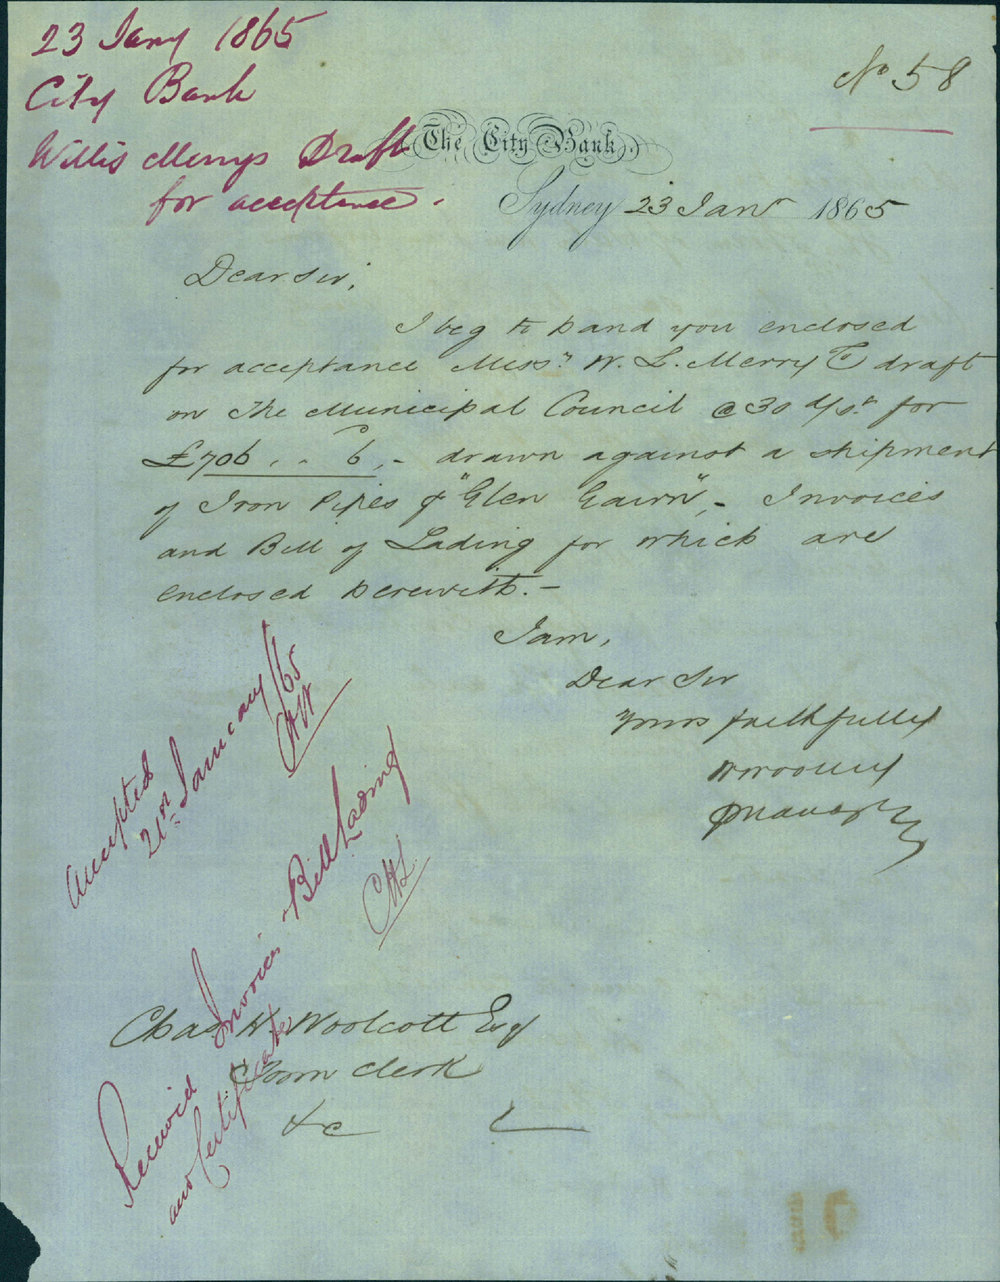 23 Jany 1865
City Bank
Willis Merrys Draft
for acceptance.
No 58
The City Bank.
Sydney 23 Jany 1865
Dear Sir,
I beg to hand you enclosed
for acceptance Messrs W. L. Merry & Co draft
on the Municipal Council @ 30 d/st for
£706 . . 6, - drawn against a shipment
of Iron Pipes p "Glen Gairn", - Invoices
and Bill of Lading for which are
enclosed herewith. -
I am,
Dear Sir
Yours faithfully
Manager
Accepted
21st January /65
CHW
Received Invoices Bill Lading
and Certificates
CHW
Chas H Woolcott Esq
Town Clerk
&c